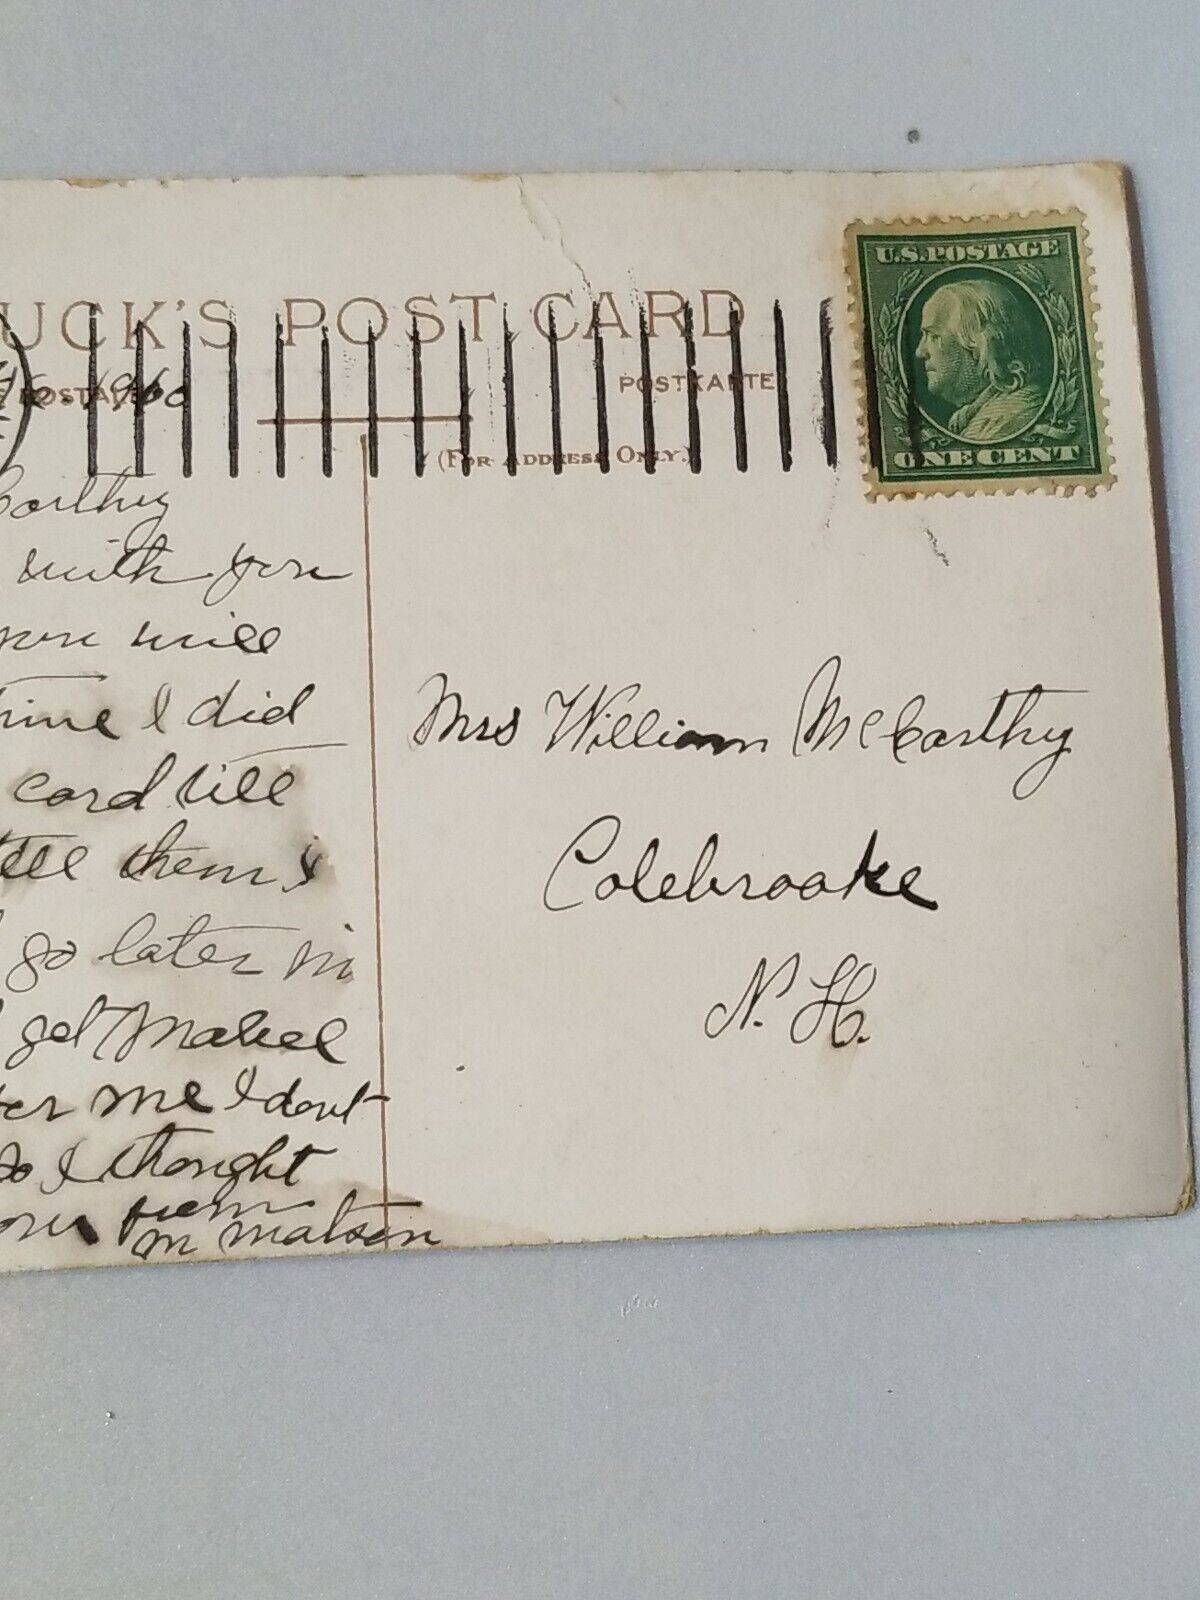 UCK'S POST CARD
U.S. POSTAGE
POSTKARTE
(FOR ADDRESS ONLY.)
ONE CENT
Carthy
with you
you will
time I did
card till
tell them &
go later in
get Mabel
me I dont
so I thought
from
M Matson
Mrs William McCarthy
Colebrooke
N. H.